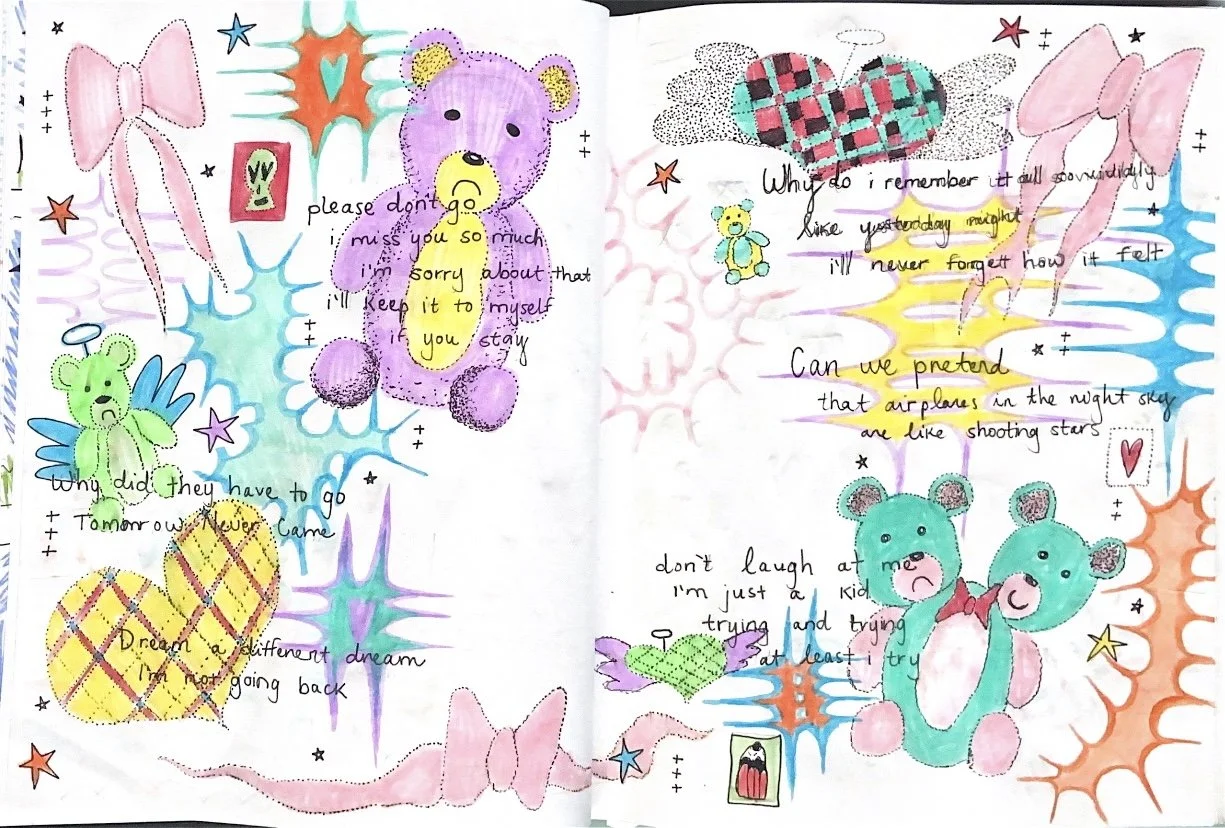 please don't go
i miss you so much
i'm sorry about that
i'll keep it to myself
if you stay
Why did they have to go
Tomorrow Never Came
Dream a different dream
I'm not going back
Why do i remember it all so vividly
like yesterday night
i'll never forget how it felt
Can we pretend
that airplanes in the night sky
are like shooting stars
don't laugh at me
i'm just a kid
trying and trying
at least i try